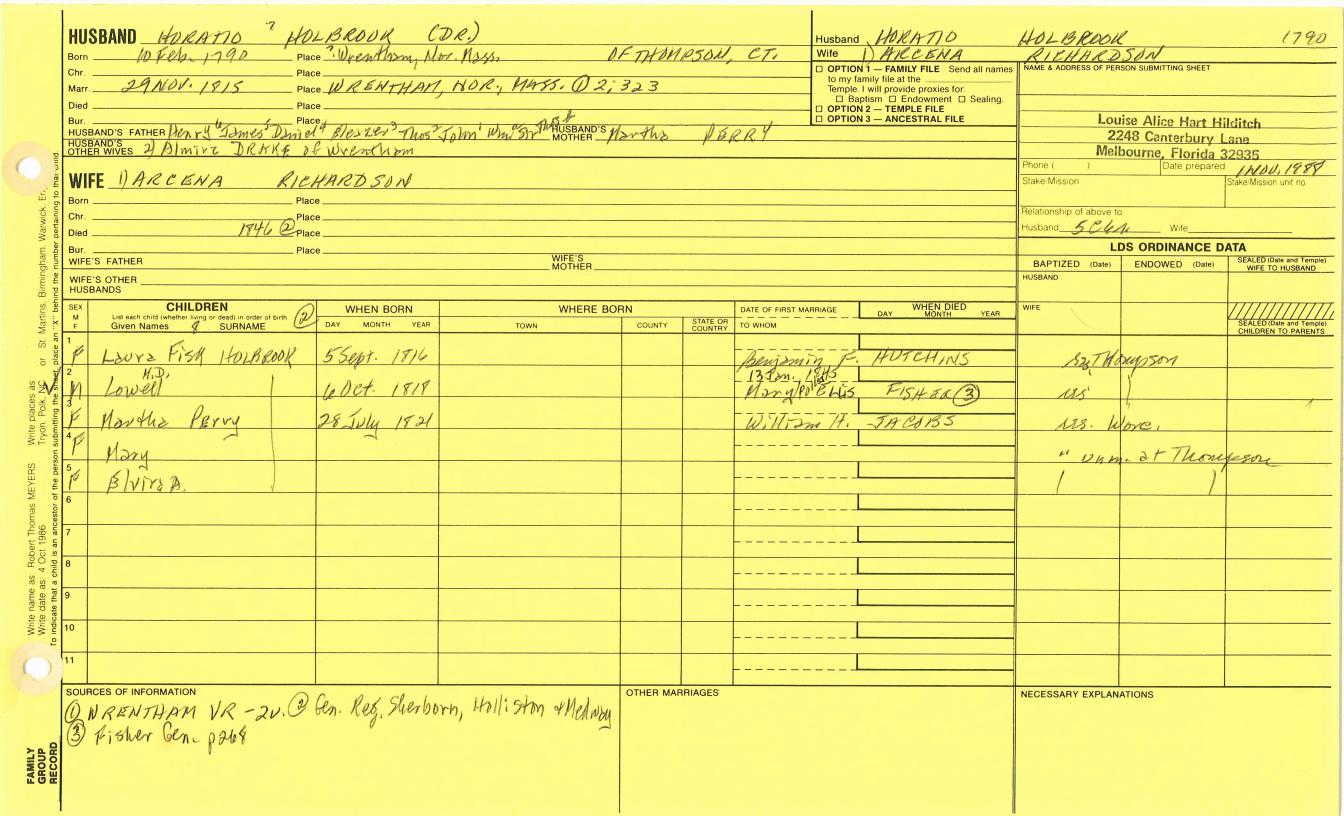 HUSBAND HORATIO ? HOLBROOK (DR.)
Born 10 Feb. 1790 Place ? Wrentham, Nor. Mass. OF THOMPSON, CT.
Chr. Place
Marr. 29 NOV. 1815 Place WRENTHAM, NOR., MASS. ① 2; 323
Died Place
Bur. Place
HUSBAND'S FATHER Henry James Daniel Eleazer Thos John Wm HUSBAND'S MOTHER Martha PERRY
HUSBAND'S OTHER WIVES 2) Almira DRAKE of Wrentham
WIFE 1) ARCENA RICHARDSON
Born Place
Chr. Place
Died 1846 ② Place
Bur. Place
WIFE'S FATHER WIFE'S MOTHER
WIFE'S OTHER HUSBANDS
Husband HORATIO HOLBROOK 1790
Wife 1) ARCENA RICHARDSON
☐ OPTION 1 — FAMILY FILE Send all names
to my family file at the
Temple. I will provide proxies for
☐ Baptism ☐ Endowment ☐ Sealing.
☐ OPTION 2 — TEMPLE FILE
☐ OPTION 3 — ANCESTRAL FILE
NAME & ADDRESS OF PERSON SUBMITTING SHEET
Louise Alice Hart Hilditch
2248 Canterbury Lane
Melbourne, Florida 32935
Phone ( ) Date prepared 1 NOV, 1988
Stake/Mission Stake/Mission unit no.
Relationship of above to
Husband 5C6R Wife
LDS ORDINANCE DATA
BAPTIZED (Date) ENDOWED (Date) SEALED (Date and Temple) WIFE TO HUSBAND
HUSBAND
WIFE
SEALED (Date and Temple) CHILDREN TO PARENTS
SEX M F
CHILDREN ②
List each child (whether living or dead) in order of birth
Given Names & SURNAME
WHEN BORN
DAY MONTH YEAR
WHERE BORN
TOWN COUNTY STATE OR COUNTRY
DATE OF FIRST MARRIAGE
TO WHOM
WHEN DIED
DAY MONTH YEAR
1 F Laura Fisk HOLBROOK 5 Sept. 1816 Benjamin F. HUTCHINS Thompson
2 M Lowell M.D. 6 Oct. 1818 13 Jan. 1845 Mary Ellis FISHER ③
3 F Martha Perry 28 July 1821 William H. JACOBS res. Worc.
4 F Mary " unm. at Thompson
5 F Elvira A.
6
7
8
9
10
11
SOURCES OF INFORMATION
① WRENTHAM VR - 2v. ② Gen. Reg. Sherborn, Holliston & Medway
③ Fisher Gen. p268
OTHER MARRIAGES
NECESSARY EXPLANATIONS
Write name as: Robert Thomas MEYERS Write places as: Tryon, Polk, NC or St. Martins, Birmingham, Warwick, En.
Write date as: 4 Oct 1986
To indicate that a child is an ancestor of the person submitting the sheet, place an "X" behind the number pertaining to that child.
FAMILY
GROUP
RECORD